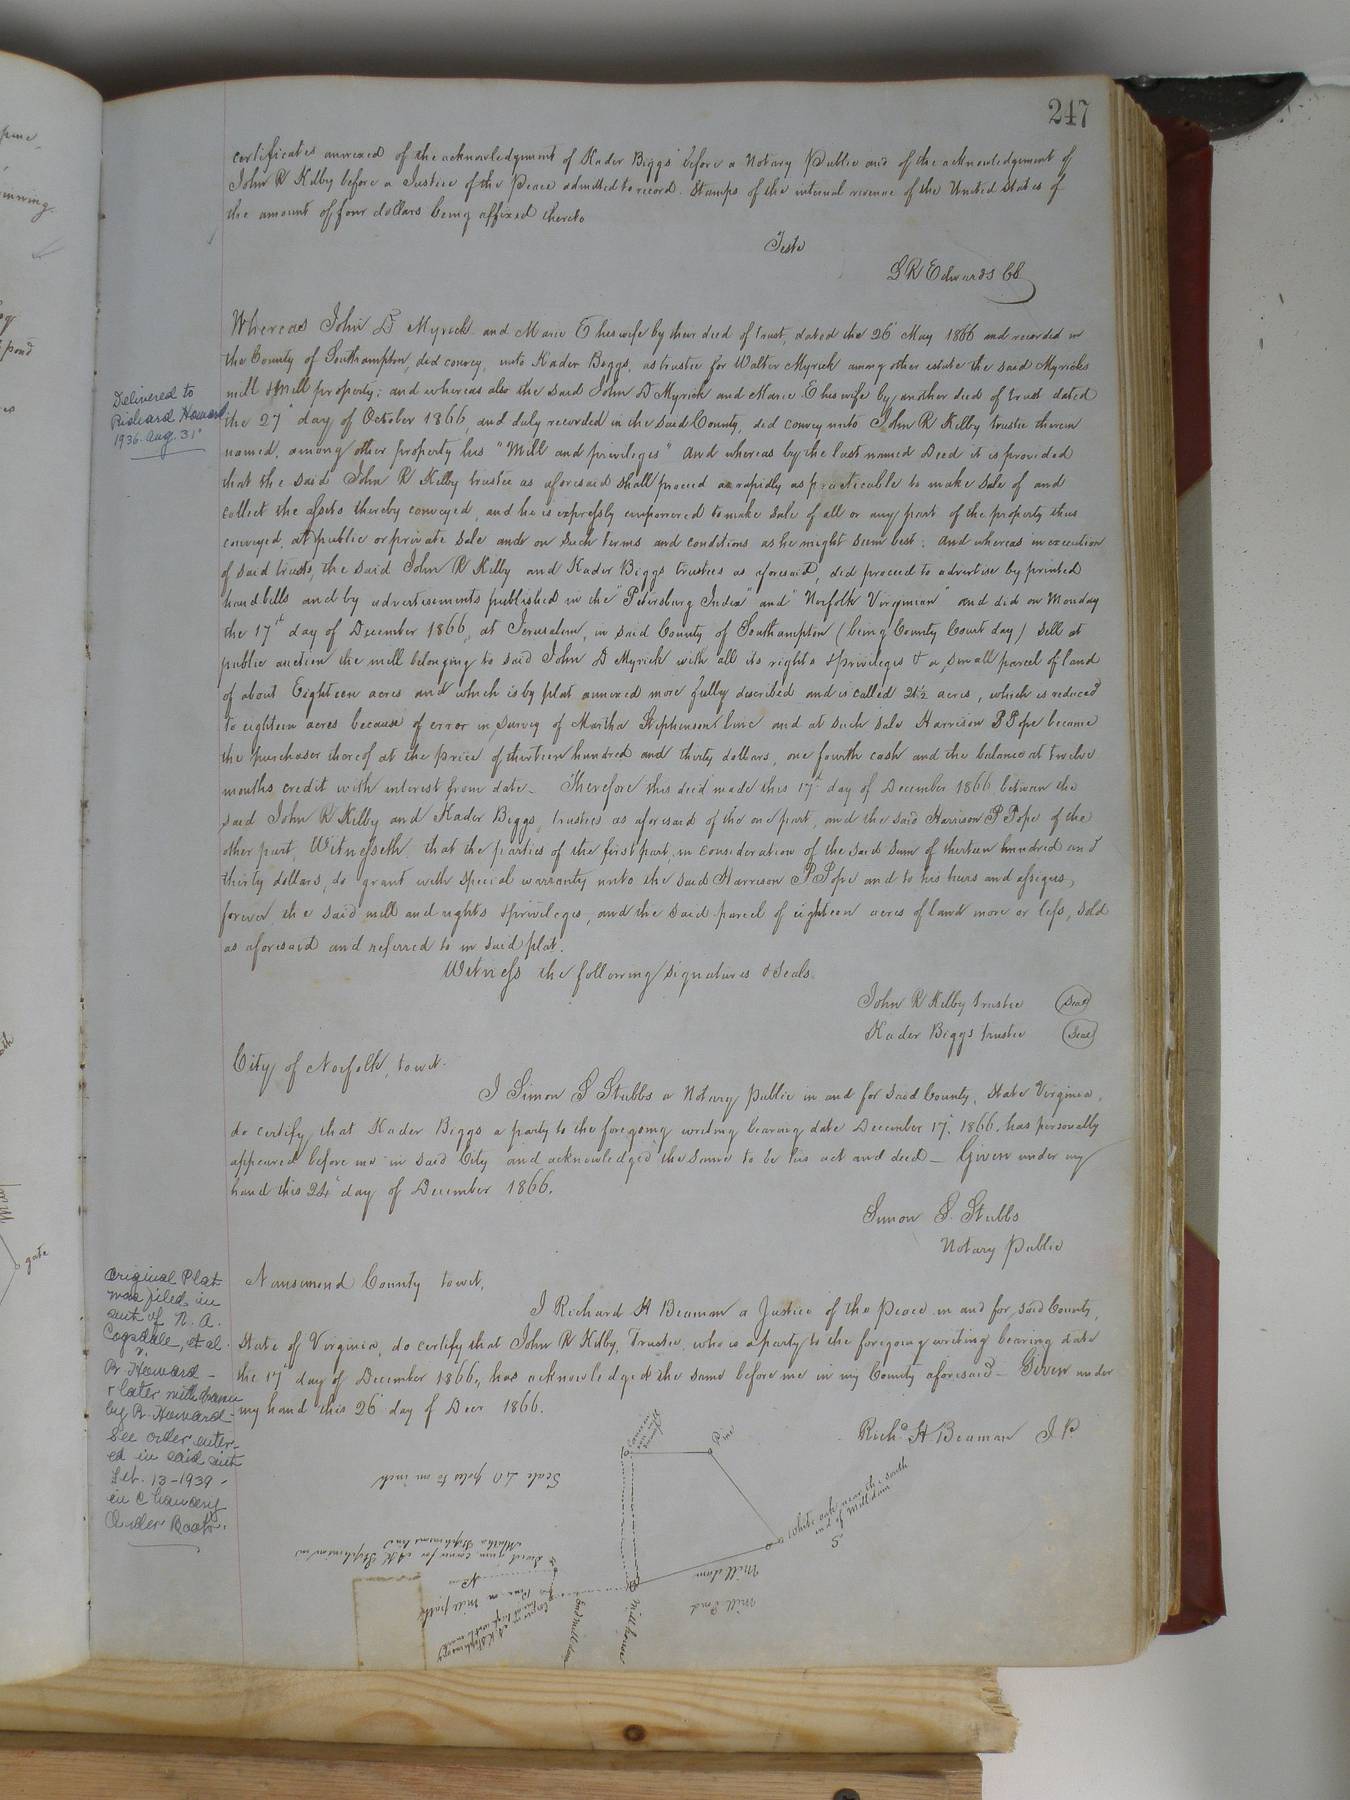 247
certificates annexed of the acknowledgment of Kader Biggs before a Notary Public and of the acknowledgement of
John R Kilby before a Justice of the Peace admitted to record. Stamps of the internal revenue of the United States of
the amount of four dollars being affixed thereto
Teste
L R Edwards Cl
Whereas John D Myrick and Marie E his wife by their deed of trust, dated the 26 May 1866 and recorded in
the County of Southampton, did convey, unto Kader Biggs, as trustee for Walter Myrick among other estate the said Myricks
mill & mill property; and whereas also the said John D Myrick and Marie E his wife by another deed of trust dated
the 27 day of October 1866, and duly recorded in the said County, did convey unto John R Kilby trustee therein
named, among other property his "Mill and privileges" And whereas by the last named Deed it is provided
that the said John R Kilby trustee as aforesaid shall proceed as rapidly as practicable to make sale of and
collect the assets thereby conveyed, and he is expressly empowered to make sale of all or any part of the property thus
conveyed, at public or private sale and on such terms and conditions as he might seem best. And whereas in execution
of said trusts, the said John R Kilby and Kader Biggs trustees as aforesaid, did proceed to advertise by printed
handbills and by advertisements published in the "Petersburg Index" and "Norfolk Virginian" and did on Monday
the 17th day of December 1866, at Jerusalem, in said County of Southampton (being County Court day) sell at
public auction the mill belonging to said John D Myrick with all its rights & privileges & a small parcel of land
of about Eighteen acres and which is by plat annexed more fully described and is called 21½ acres, which is reduced
to eighteen acres because of error in survey of Martha Stephenson's line and at such sale Harrison P Pope became
the purchaser thereof at the price of thirteen hundred and thirty dollars, one fourth cash and the balance at twelve
months credit with interest from date – Therefore this deed made this 17 day of December 1866 between the
said John R Kilby and Kader Biggs, trustees as aforesaid of the one part, and the said Harrison P Pope of the
other part, Witnesseth that the parties of the first part, in consideration of the said sum of thirteen hundred and
thirty dollars, do grant with special warranty unto the said Harrison P Pope and to his heirs and assigns,
forever the said mill and rights & privileges, and the said parcel of eighteen acres of land more or less, sold
as aforesaid and referred to in said plat.
Witness the following signatures & seals.
John R Kilby trustee Seal
Kader Biggs trustee Seal
City of Norfolk, to wit.
I Simon S Stubbs a Notary Public in and for said County, State Virginia,
do certify that Kader Biggs a party to the foregoing writing bearing date December 17, 1866, has personally
appeared before me in said City and acknowledged the same to be his act and deed – Given under my
hand this 24 day of December 1866.
Simon S. Stubbs
Notary Public
Nansemond County to wit,
I Richard H Beaman a Justice of the Peace in and for said County,
State of Virginia, do certify that John R Kilby, Trustee, who is a party to the foregoing writing bearing date
the 17 day of December 1866, has acknowledged the same before me in my County aforesaid – Given under
my hand this 26 day of Decr 1866.
Richd H Beaman J P
Delivered to
Richard Howard
1936. Aug. 31"
Original Plat
was filed in
suit of N. A.
Cogsdale, et al.
v.
R. Howard –
& later withdrawn
by R. Howard –
See order enter-
ed in said suit
Feb. 13–1939 –
in Chancery
Order Book.
Pine
White oak near the south
end of Mill dam
S
Scale 20 poles to an inch
Mill dam
Mill Pond
Mill house
End Mill dam
Pine on mill path
Martha Stephensons land
gate